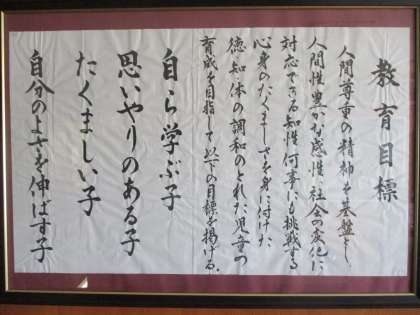 教育目標
人間尊重の精神を基盤とし、
人間性豊かな感性、社会の変化に
対応できる知性、何事にも挑戦する
心身のたくましさを身に付けた
徳・知・体の調和のとれた児童の
育成を目指して以下の目標を掲げる。
自ら学ぶ子
思いやりのある子
たくましい子
自分のよさを伸ばす子